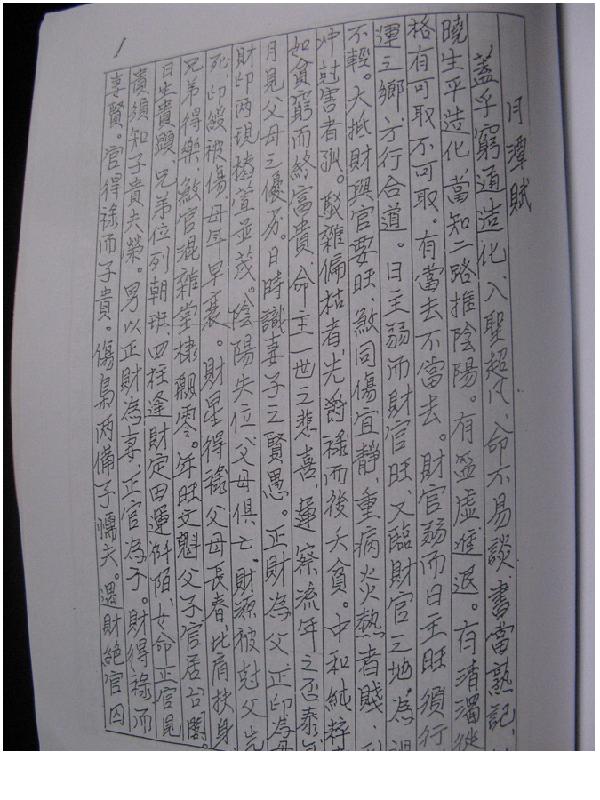 月潭賦
蓋乎窮通造化、入聖超凡、命不易談、書當熟記、
曉生平造化、當知二路推陰陽。有盈虛進退。有清濁從
格有可取不可取。有當去不當去。財官弱而日主旺須行
運之鄉、方行合道。日主弱而財官旺、又臨財官之地、為
不輕。大抵財與官要旺、煞司傷宜靜、重病炎熱者賤、
冲尅害者孤。駁雜偏枯者、先爵祿而後夭貧。中和純粹
如貧窮而終富貴、命主一世之悲喜、運察流年之否泰、
月見父母之優劣。日時識妻子之賢愚。正財為父正印為母
財印两現椿萱並茂。陰陽失位、父母俱亡、財源被尅父先
死、印綬被傷母年早喪。財星得祿、父母長春、比肩扶身、
兄弟得樂、煞官混雜堂棣飄零。年旺文魁父子官居台閣。
日生貴顯、兄弟位列朝班、四柱逢財定四運阡陌、女命正官見
貴須知子貴夫榮。男以正財為妻、正官為子。財得祿而
妻賢。官得祿而子貴。傷梟两備子懦夫。遇財絕官囚
1